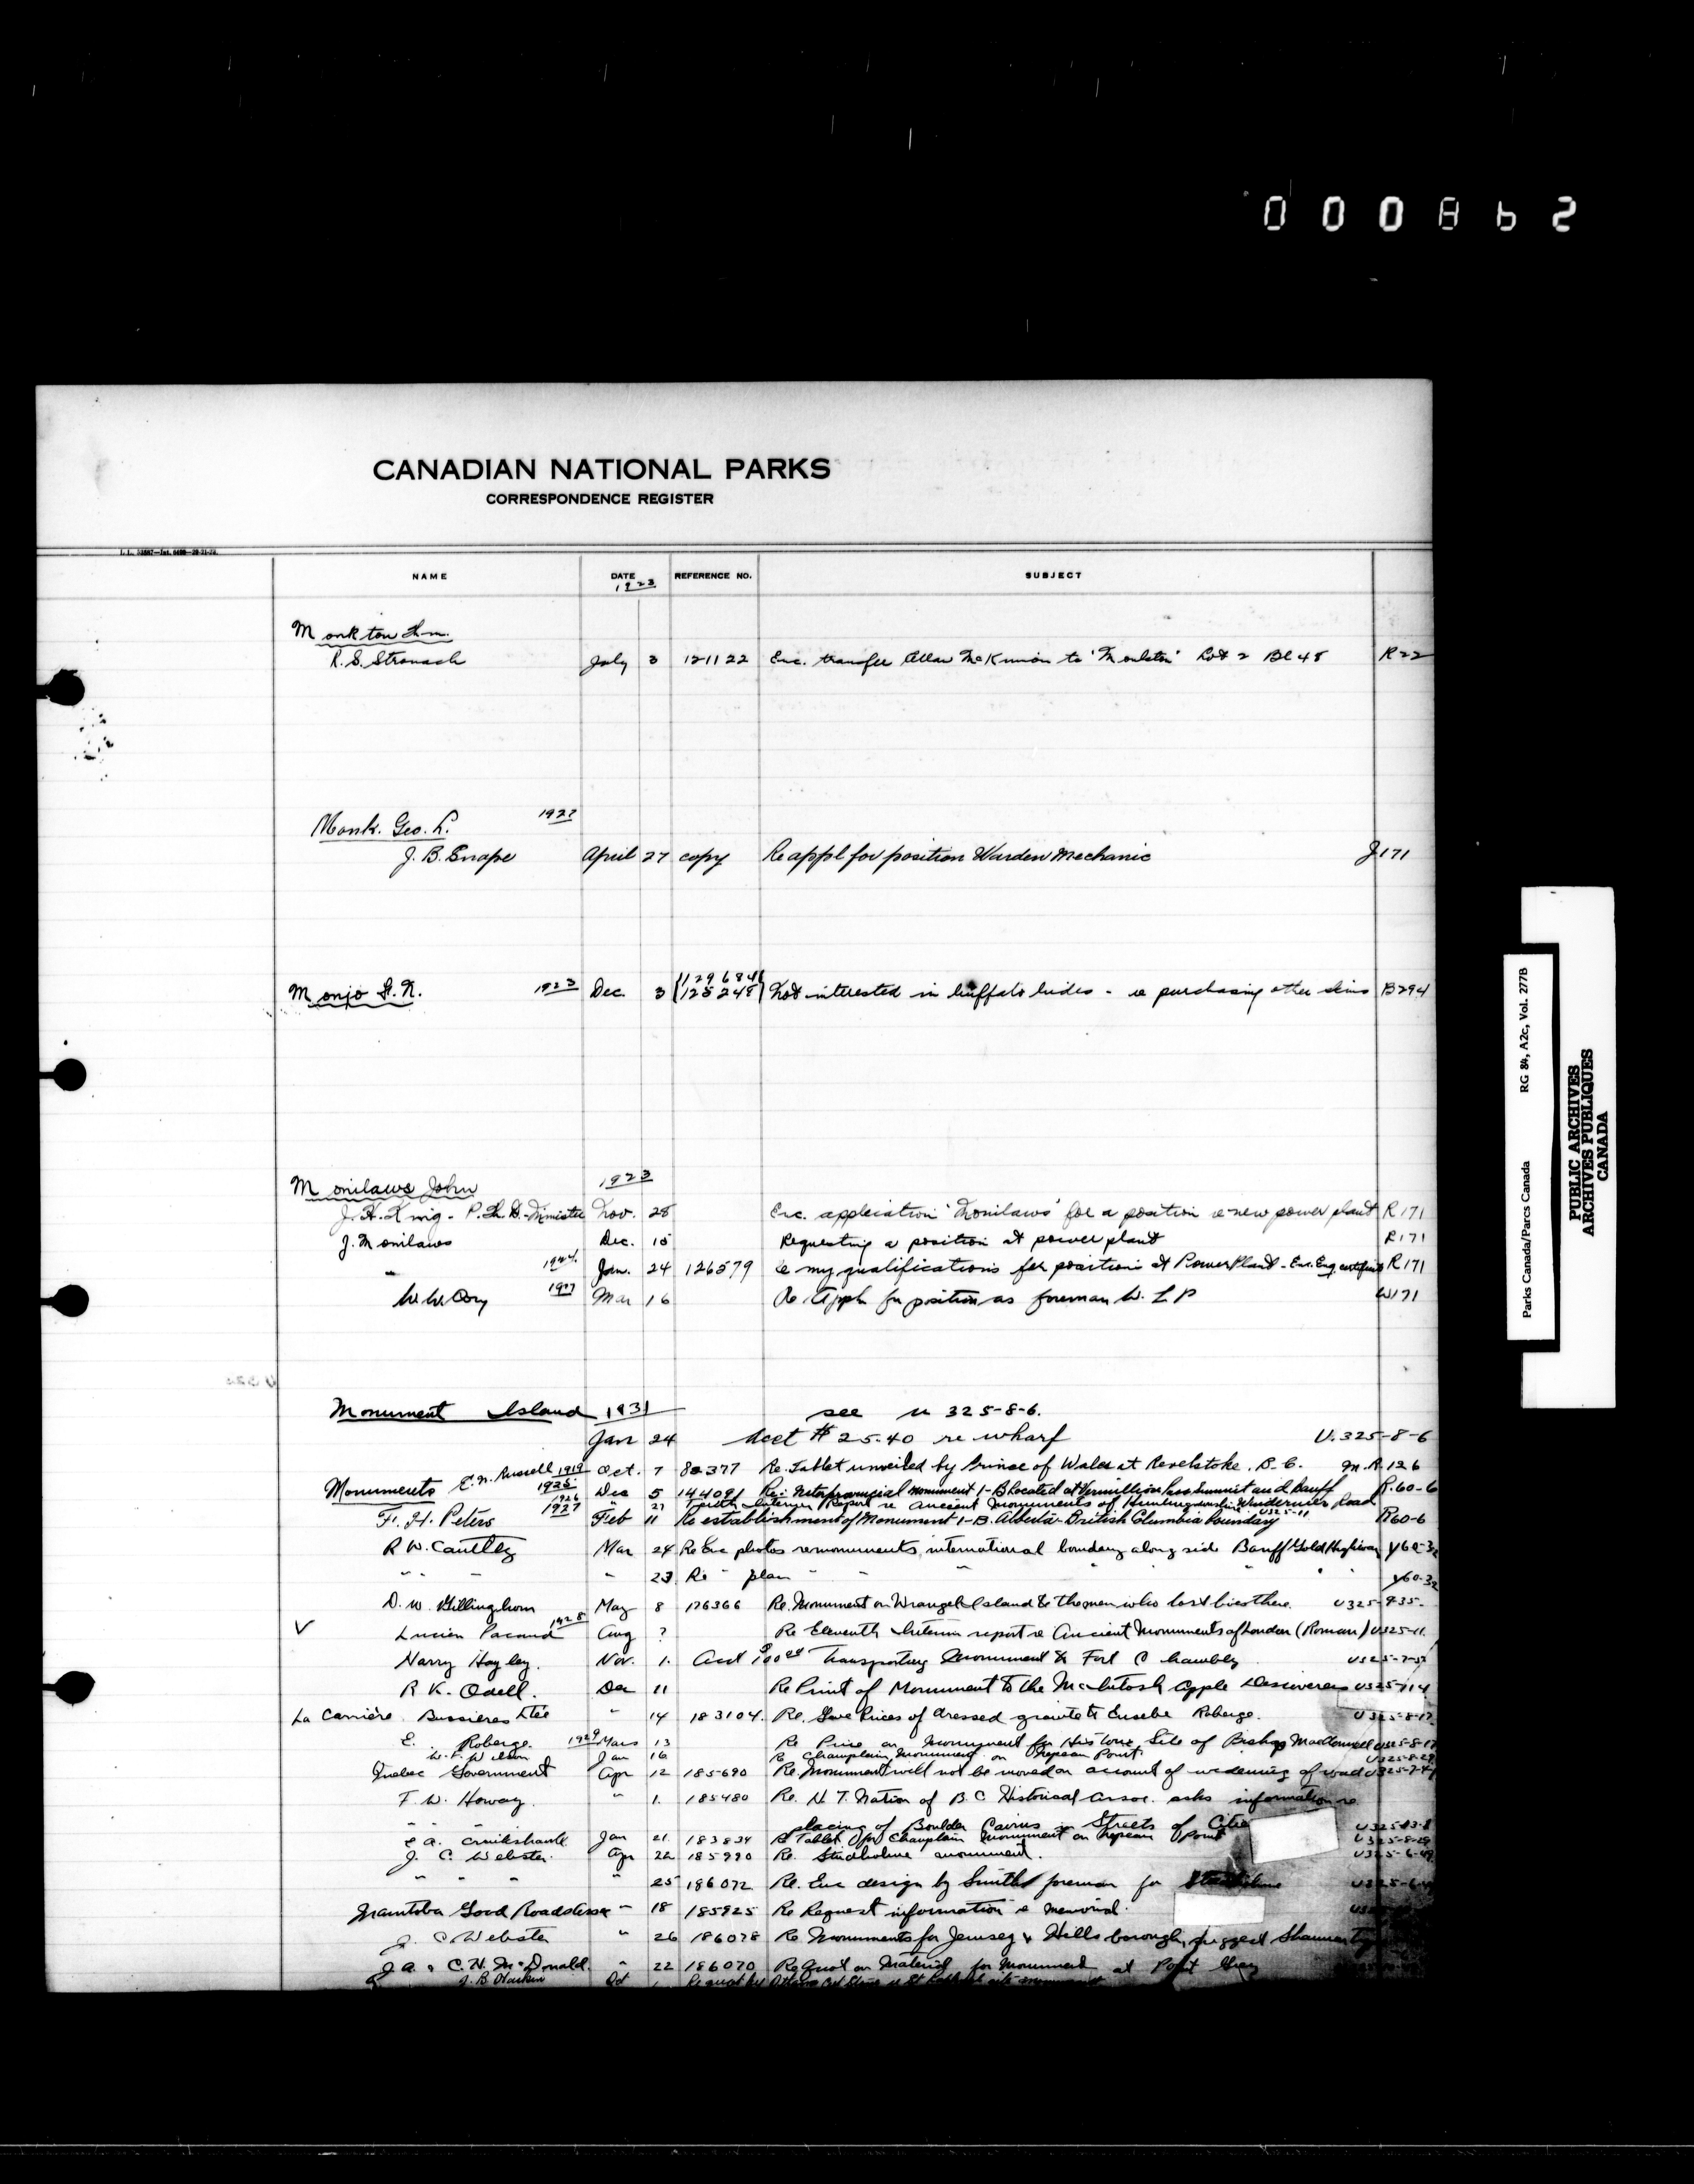 000862
CANADIAN NATIONAL PARKS
CORRESPONDENCE REGISTER
NAME DATE REFERENCE NO. SUBJECT
1923
Monkton
R. S. Stronach July 3 121122 Enc. transfer Allan McKinnon to 'Monkton' Lot 2 Bl 48 R22
Monk. Geo. L. 1927
J. B. Snape April 27 copy Re appl for position Warden Mechanic J171
129684
Monjo 1923 Dec. 3 125248 Not interested in buffalo hides - re purchasing other skins B294
Monilaws John 1923
J. H. King - Minister Nov. 28 Enc. application 'Monilaws' for a position re new power plant R171
J. Monilaws Dec. 15 Requesting a position at power plant R171
" 1924 Jan. 24 126579 re my qualifications for position at Power Plant - Enc. Eng certificate R171
W. W. Cory 1927 Mar 16 Re Appln for position as foreman W. L P W171
Monument Island 1931 see U 325-8-6.
Jan 24 Acct # 25.40 re wharf U.325-8-6
E. N. Russell 1919 Oct. 7 80377 Re. Tablet unveiled by Prince of Wales at Revelstoke. B. C. M.R.126
Monuments 1925 Dec 5 144091 Re: Interprovincial Monument 1-B located at Vermillion Pass Summit and Banff Windermere Road R.60-6
1926 " 27 Tenth Interim Report re ancient monuments of Huntingdonshire U325-11
F. H. Peters 1927 Feb 11 Re establishment of Monument 1-B. Alberta-British Columbia Boundary R60-6
R W. Cautley Mar 24 Re Enc photos re monuments international boundary along side Banff Highway Y60-32
" " " 23 Re " plan " " " " Y60-32
D. W. Gillingham May 8 176366 Re. Monument on Wrangel Island to the men who lost lives there. U325-435-
V Lucien Pacaud 1928 Aug ? Re Eleventh Interim report re Ancient Monuments of London (Roman) U325-11
Harry Hayley. Nov. 1. Acct Transporting Monument to Fort Chambly
R K. Odell. Dec 11 Re Print of Monument to the McIntosh Apple Discoverer U325-114
La Carrière Bussieres Ltée " 14 183104. Re. Gave Prices of dressed granite to Eusebe Roberge. U325-8-17
E. Roberge. 1929 Mars 13 Re Price on Monument for Historic Site of Bishop MacDonnell U325-8-17
W. F. Wilson Jan 16 Re Champlain Monument on Nepean Point. U325-8-29
Quebec Government Apr 12 185690 Re. Monument will not be moved on account of widening of road
F. W. Howay. " 1. 185480 Re. H T. Nation of B. C Historical Assoc. asks information re
" " " placing of Boulder Cairns in Streets of
E A. Cruikshank Jan 21. 183834 Re Tablet for Champlain Monument on Nepean Point U325-8-29
J. C. Webster. Apr 22 185990 Re. Studholme monument. U325-6-49
" " " " 25 186072 Re. Enc design by Smith foreman for
Manitoba Good Roads Assn " 18 185925 Re Request information re Memorial.
J. C Webster " 26 186078 Re Monuments for Jemseg & Hillsborough, suggest
J A. & C. H. McDonald. " 22 186070 Re Quot on Material for Monument at Point Grey
J. B. Harkin Oct 1
Parks Canada/Parcs Canada RG 84, A2c, Vol. 277B
PUBLIC ARCHIVES
ARCHIVES PUBLIQUES
CANADA